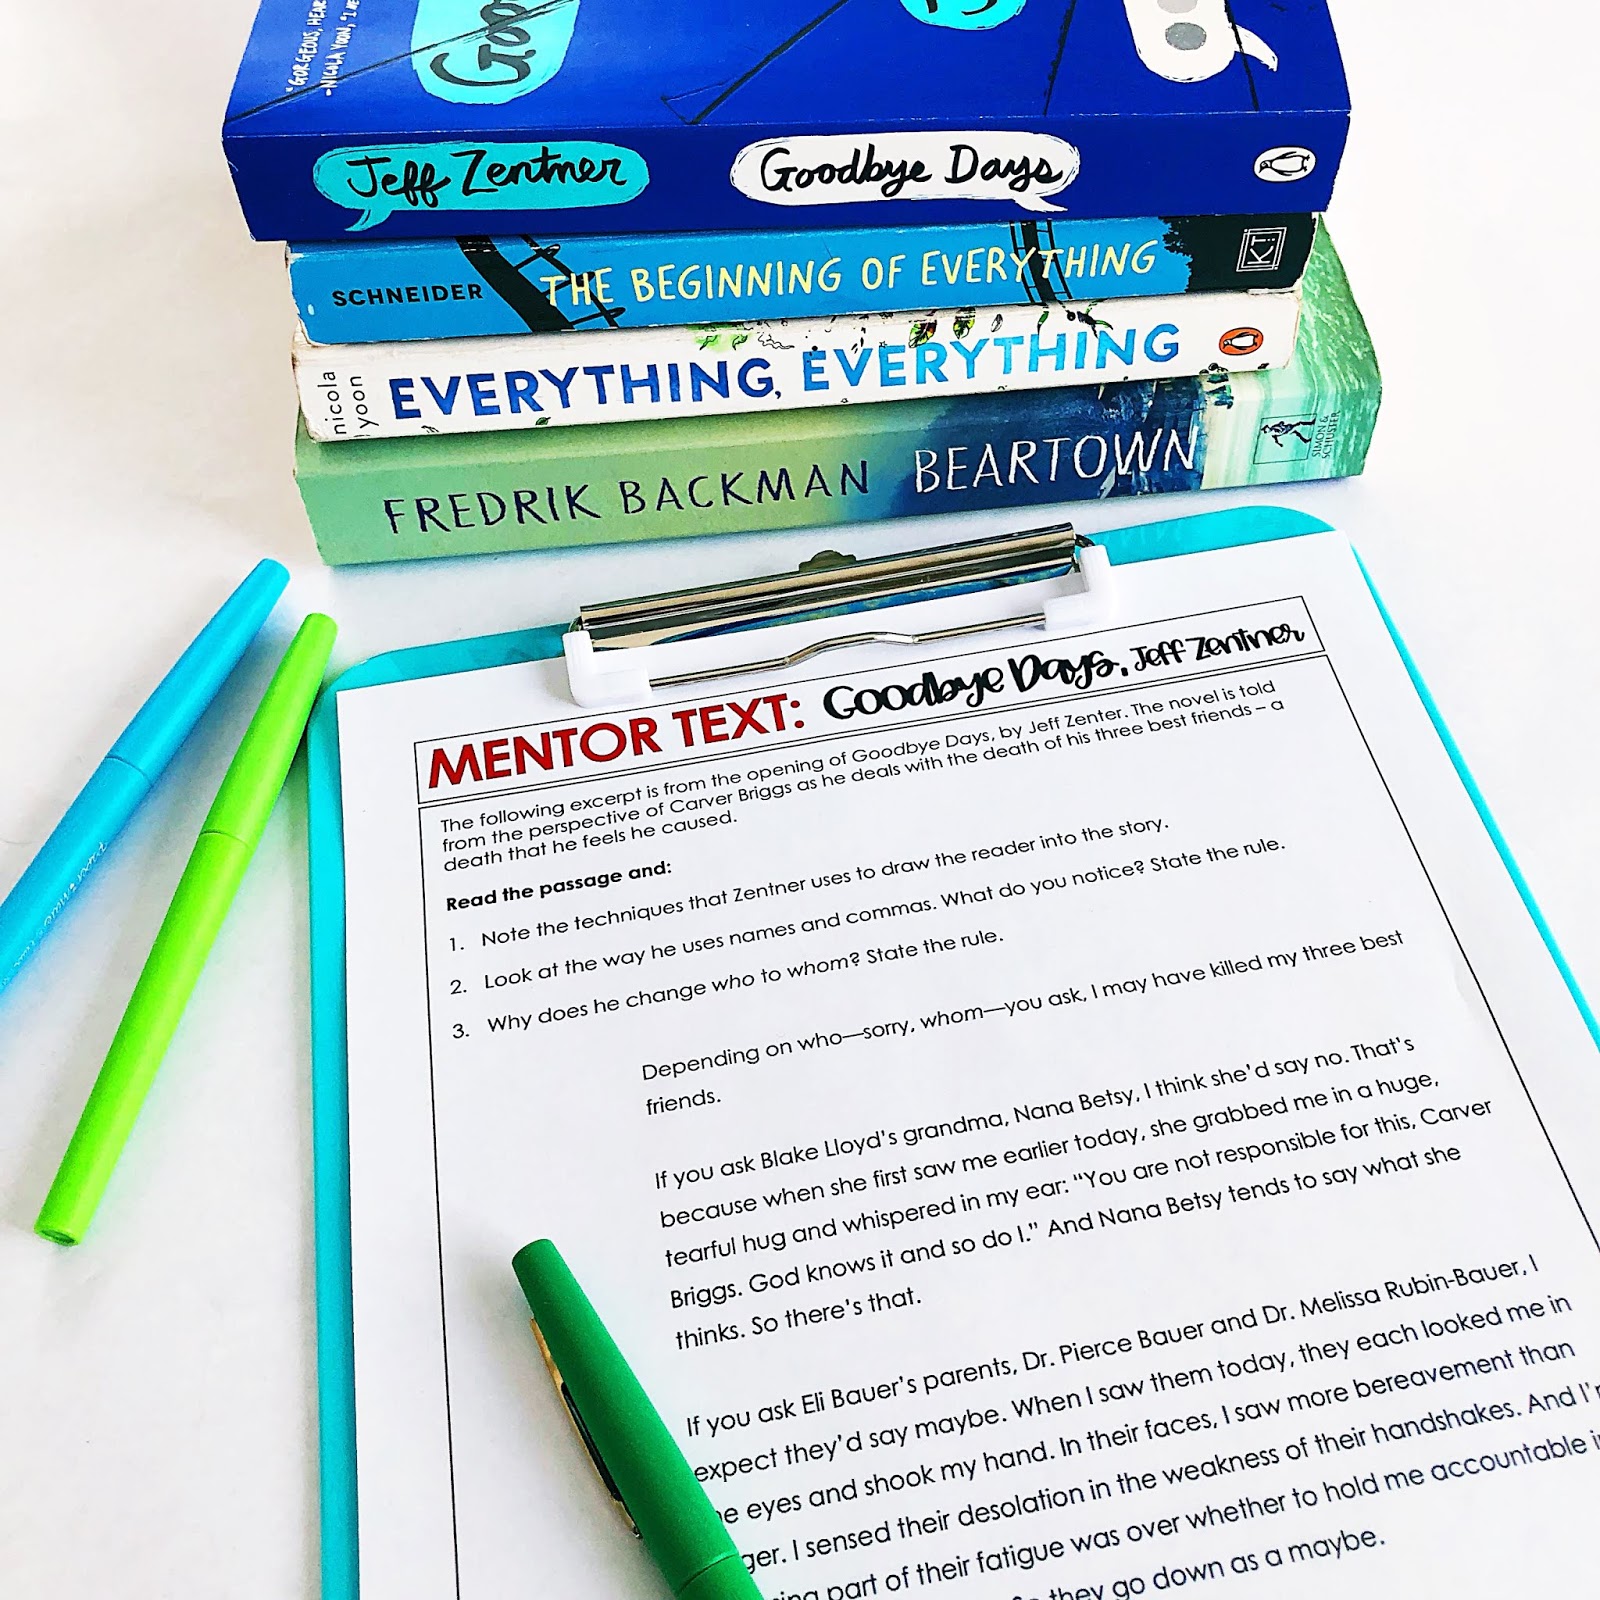 "GORGEOUS, HEAR
-NICOLA YOON,
Goo
Jeff Zentner Goodbye Days
SCHNEIDER THE BEGINNING OF EVERYTHING KT
nicola yoon EVERYTHING, EVERYTHING
FREDRIK BACKMAN BEARTOWN SIMON & SCHUSTER
MENTOR TEXT: Goodbye Days, Jeff Zentner
The following excerpt is from the opening of Goodbye Days, by Jeff Zenter. The novel is told
from the perspective of Carver Briggs as he deals with the death of his three best friends – a
death that he feels he caused.
Read the passage and:
1. Note the techniques that Zentner uses to draw the reader into the story.
2. Look at the way he uses names and commas. What do you notice? State the rule.
3. Why does he change who to whom? State the rule.
Depending on who—sorry, whom—you ask, I may have killed my three best
friends.
If you ask Blake Lloyd's grandma, Nana Betsy, I think she'd say no. That's
because when she first saw me earlier today, she grabbed me in a huge,
tearful hug and whispered in my ear: "You are not responsible for this, Carver
Briggs. God knows it and so do I." And Nana Betsy tends to say what she
thinks. So there's that.
If you ask Eli Bauer's parents, Dr. Pierce Bauer and Dr. Melissa Rubin-Bauer, I
expect they'd say maybe. When I saw them today, they each looked me in
he eyes and shook my hand. In their faces, I saw more bereavement than
ger. I sensed their desolation in the weakness of their handshakes. And I'm
part of their fatigue was over whether to hold me accountable in
they go down as a maybe.